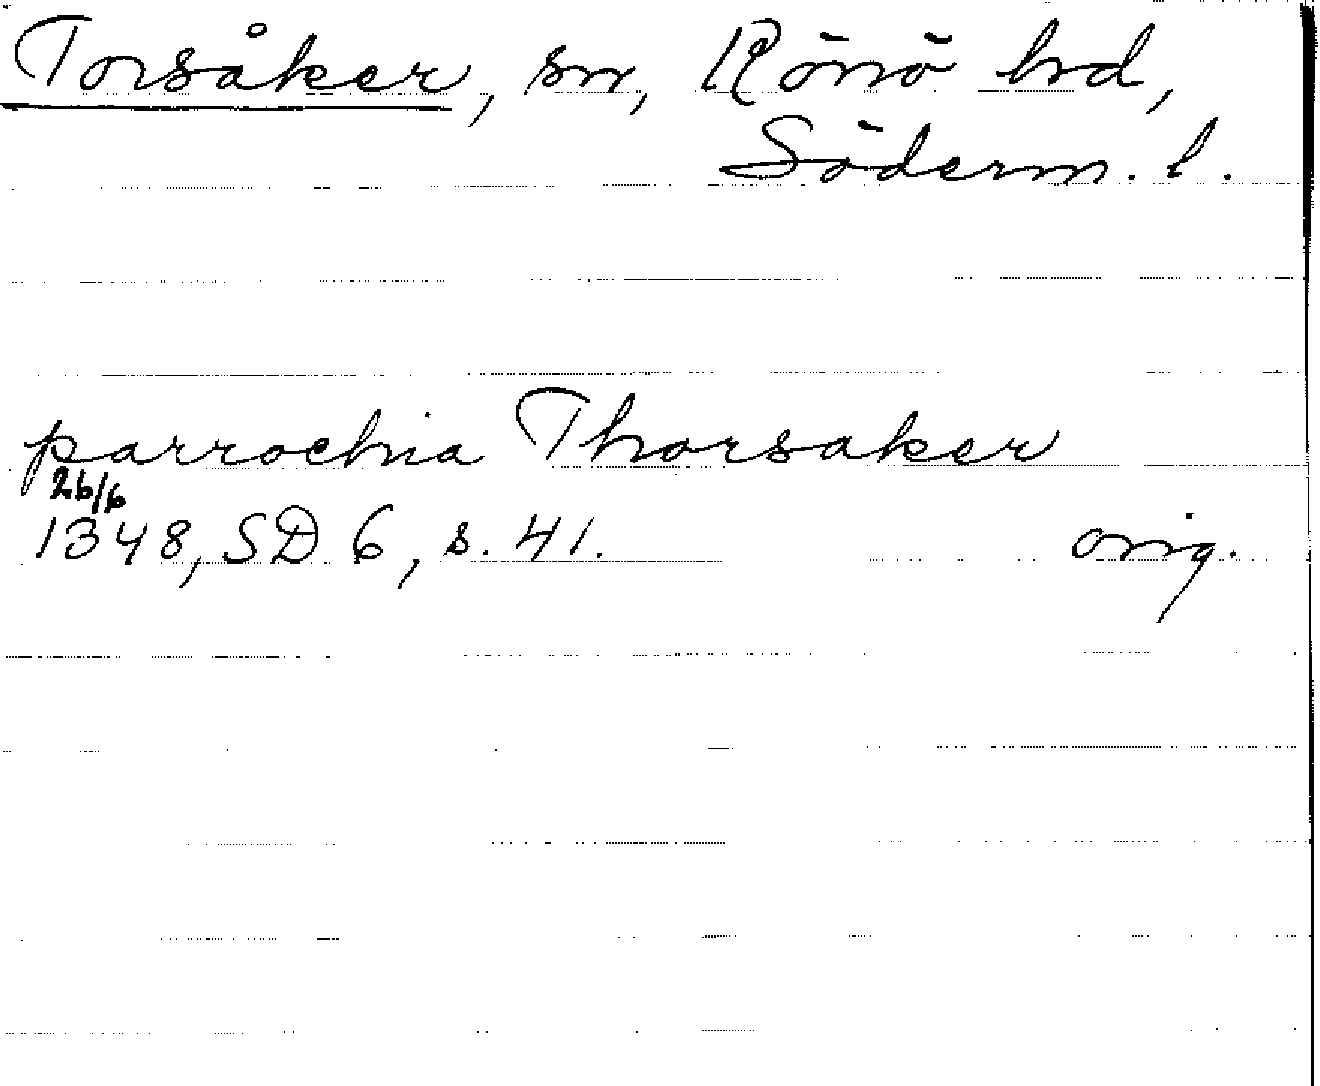 Torsåker, sn, Rönö hd,
Söderm. l.
parrochia Thorsaker
26/6
1348, SD 6, s. 41. orig.